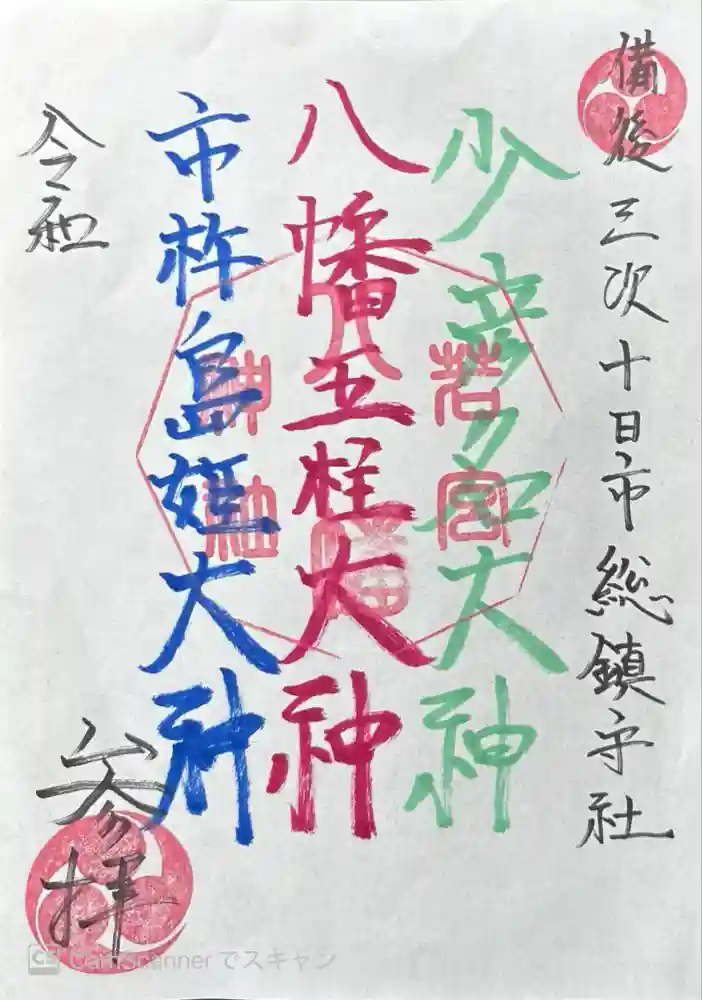 備後三次十日市総鎮守社
少彦名大神
八幡五柱大神
市杵島姫大神
令和
参拝
若宮
八幡
神社
CS CamScanner でスキャン